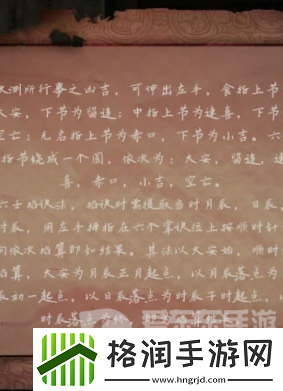 测所行事之凶吉,可伸出左手,食指上节
大安,下节为留连;中指上节为速喜,下节
空亡;无名指上节为赤口,下节为小吉。六
指节绕成一个圆,依次为:大安,留连,速
喜,赤口,小吉,空亡。
六壬掐诀法,掐诀时需提取当时月辰,日辰,
时辰,用左手拇指在六个掌诀位上按顺时针
向依次掐算即知结果。其法以大安始,顺时
掐算,大安为月辰正月起点,以月辰落点为
辰初一起点,以日辰落点为时辰子时起点,
时辰落点为
格润手游网
www.hngrjd.com